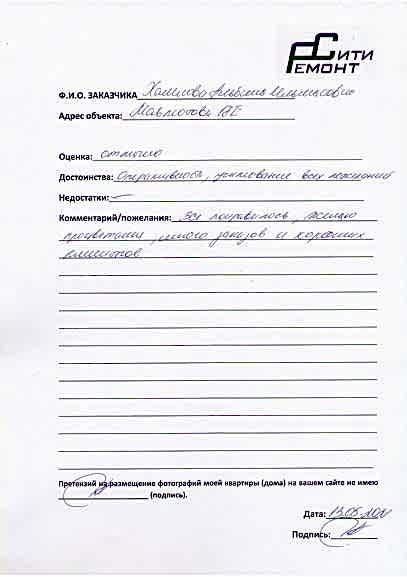 СИТИ
РЕМОНТ
Ф.И.О. ЗАКАЗЧИКА
Адрес объекта:
Оценка: отлично
Достоинства: Оперативность, понимание всех пожеланий
Недостатки: —
Комментарий/пожелания: Все понравилось, желаю
процветания, много заказов и хороших
клиентов
Претензий на размещение фотографий моей квартиры (дома) на вашем сайте не имею
(подпись).
Дата: 13.05.
Подпись: